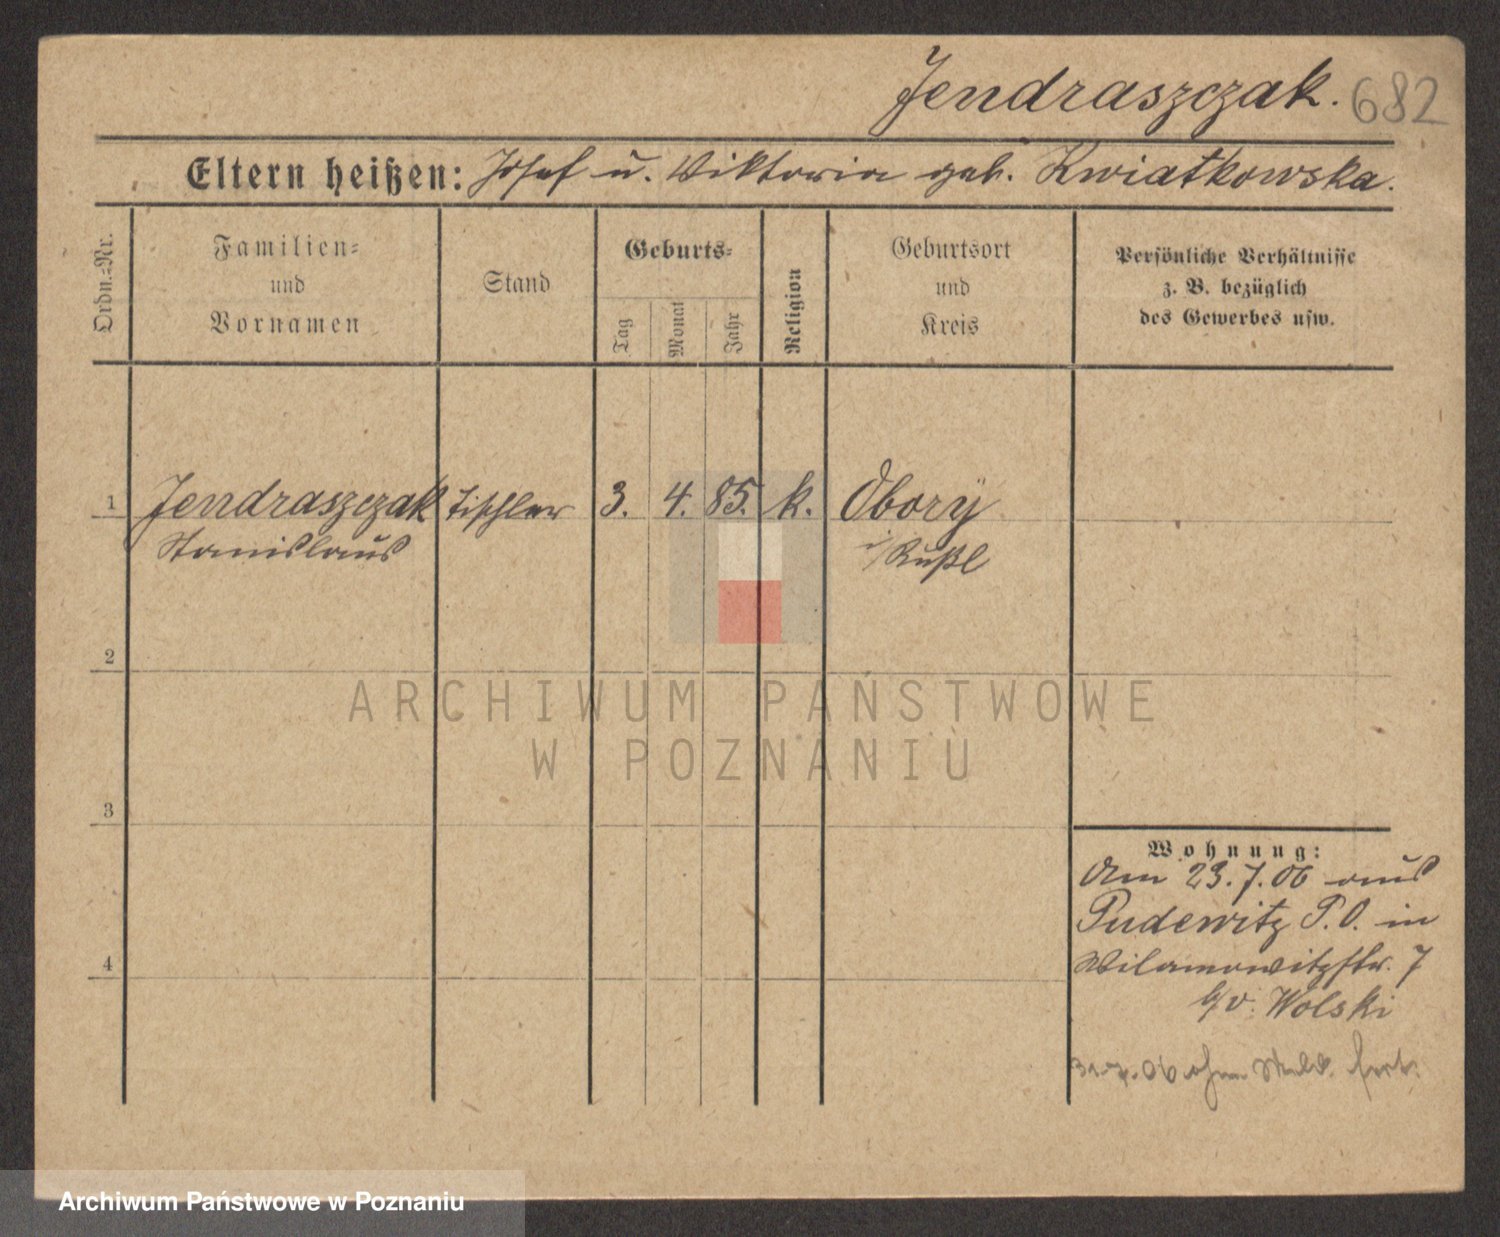 Jendraszczak. 682
Eltern heißen: Josef u. Wiktoria geb. Kwiatkowska.
Ordn.-Nr.
Familien-
und
Vornamen
Stand
Geburts-
Tag
Monat
Jahr
Religion
Geburtsort
und
Kreis
Persönliche Verhältnisse
z. B. bezüglich
des Gewerbes usw.
1 Jendraszczak Tischler 3. 4. 85. k. Obory
Stanislaus i/Rußl
2
3
4
Wohnung:
Am 23.7.06 aus
Pudewitz P.O. in
Wilamowitzstr. 7
b/v. Wolski
31.7.06 ohne Meld. fort.
ARCHIWUM PAŃSTWOWE
W POZNANIU
Archiwum Państwowe w Poznaniu